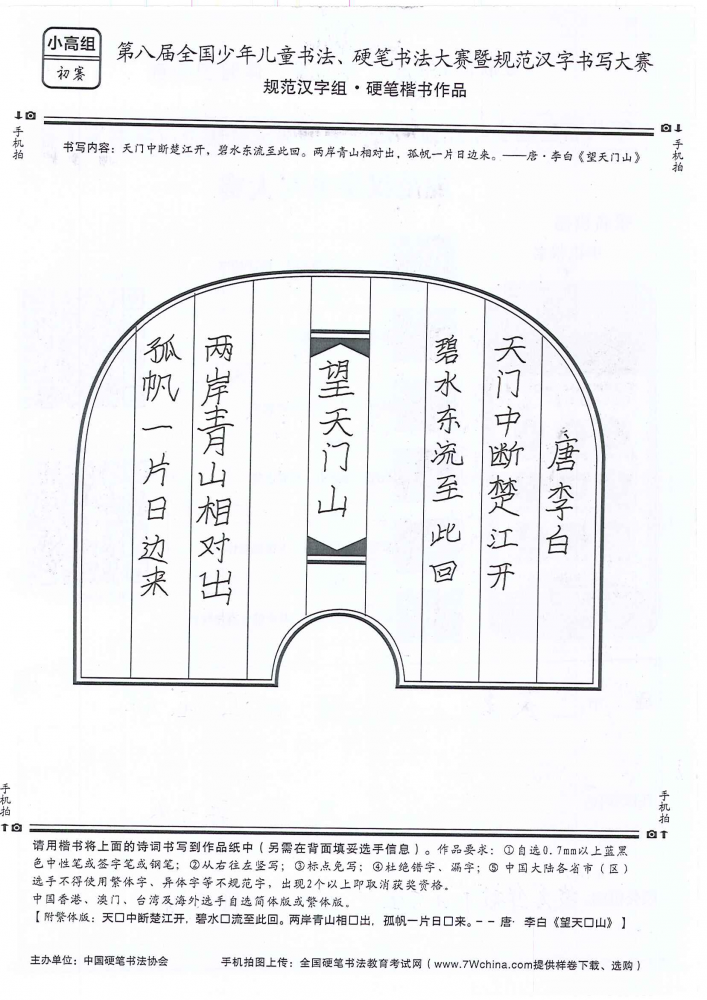 小高组
初赛
第八届全国少年儿童书法、硬笔书法大赛暨规范汉字书写大赛
规范汉字组·硬笔楷书作品
手机拍
手机拍
书写内容：天门中断楚江开，碧水东流至此回。两岸青山相对出，孤帆一片日边来。——唐·李白《望天门山》
唐李白
天门中断楚江开
碧水东流至此回
望天门山
两岸青山相对出
孤帆一片日边来
手机拍
手机拍
请用楷书将上面的诗词书写到作品纸中（另需在背面填妥选手信息）。作品要求：①自选0.7mm以上蓝黑
色中性笔或签字笔或钢笔；②从右往左竖写；③标点免写；④杜绝错字、漏字；⑤中国大陆各省市（区）
选手不得使用繁体字、异体字等不规范字，出现2个以上即取消获奖资格。
中国香港、澳门、台湾及海外选手自选简体版或繁体版。
【附繁体版：天口中断楚江开，碧水口流至此回。两岸青山相口出，孤帆一片日口来。-- 唐·李白《望天口山》】
主办单位：中国硬笔书法协会
手机拍图上传：全国硬笔书法教育考试网（www.7Wchina.com提供样卷下载、选购）